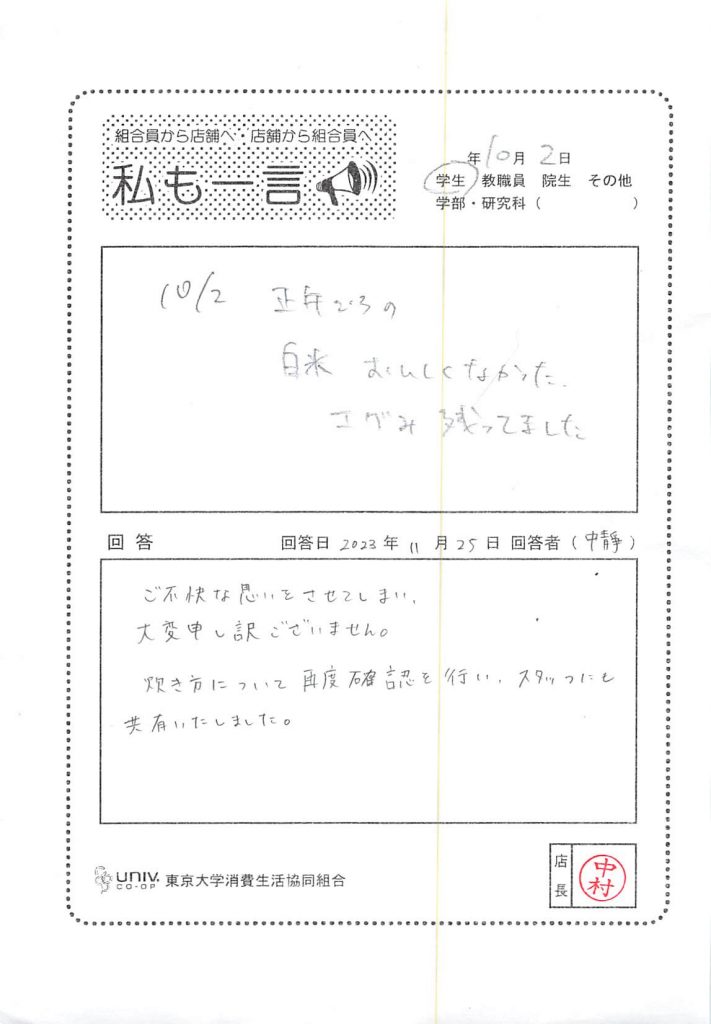 組合員から店舗へ・店舗から組合員へ
私も一言
年10月2日
学生 教職員 院生 その他
学部・研究科( )
10/2 正午ごろの
白米 おいしくなかった、
エグみ残ってました
回答 回答日 2023年 11月25日 回答者(中靜)
ご不快な思いをさせてしまい、
大変申し訳ございません。
炊き方について再度確認を行い、スタッフにも
共有いたしました。
UNIV.
CO-OP
東京大学消費生活協同組合
店長
中村